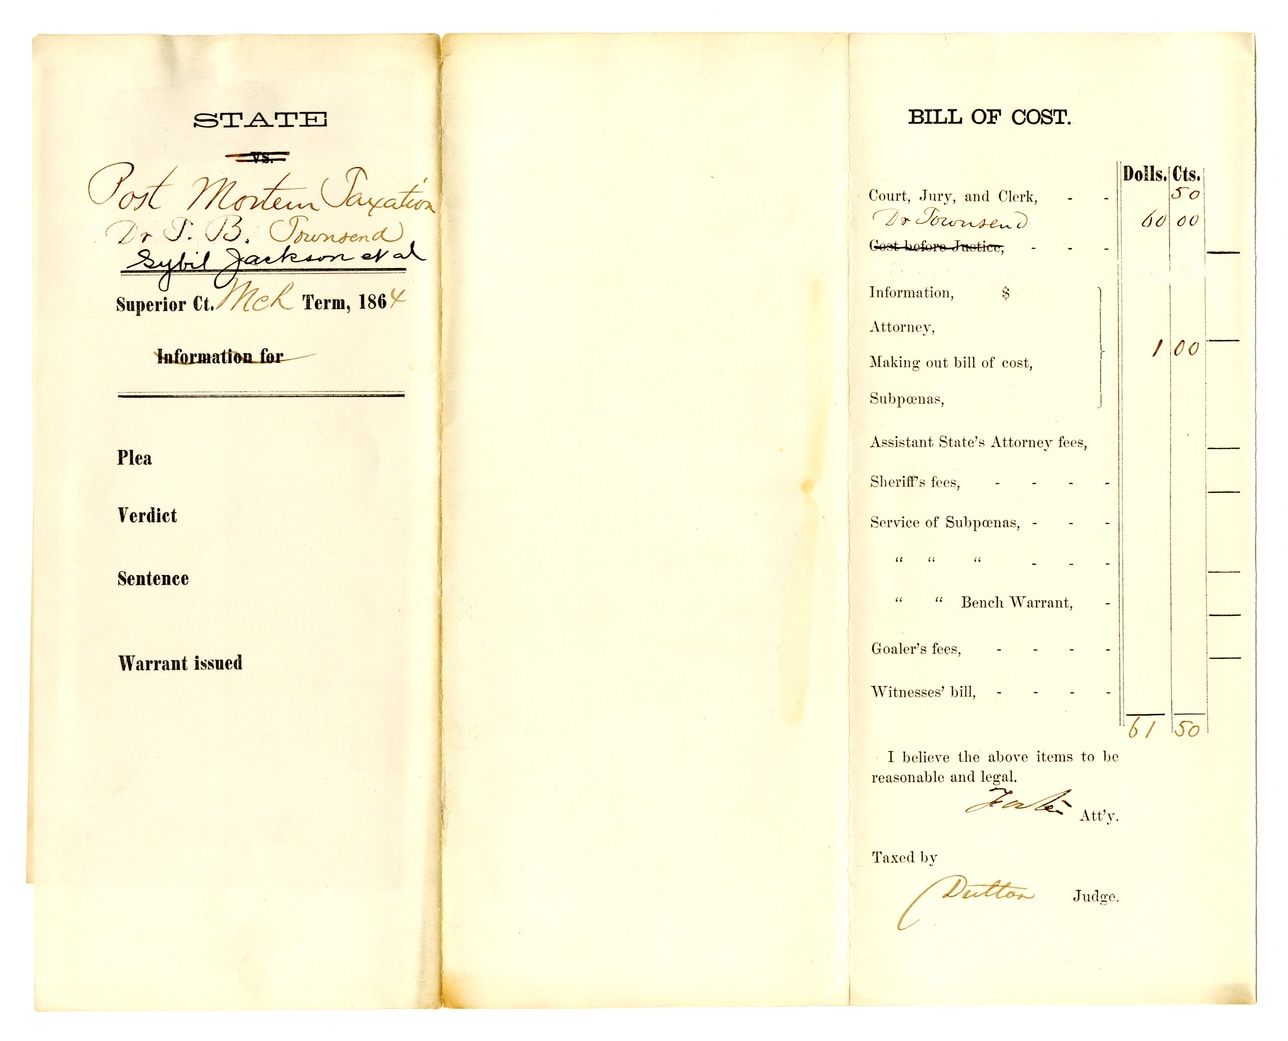 STATE
vs.
Post Mortem Taxation
Dr T. B. Townsend
Sybil Jackson et al
Superior Ct. Mch Term, 1864
Information for
Plea
Verdict
Sentence
Warrant issued
BILL OF COST.
Dolls. Cts.
Court, Jury, and Clerk, - - 50
Dr Townsend 60 00
Cost before Justice, - - -
Information, $
Attorney,
1 00
Making out bill of cost,
Subpœnas,
Assistant State's Attorney fees,
Sheriff's fees, - - - -
Service of Subpœnas, - - -
" " " - - -
" " Bench Warrant, -
Goaler's fees, - - - -
Witnesses' bill, - - - -
61 50
I believe the above items to be
reasonable and legal.
Foster Att'y.
Taxed by
Dutton Judge.